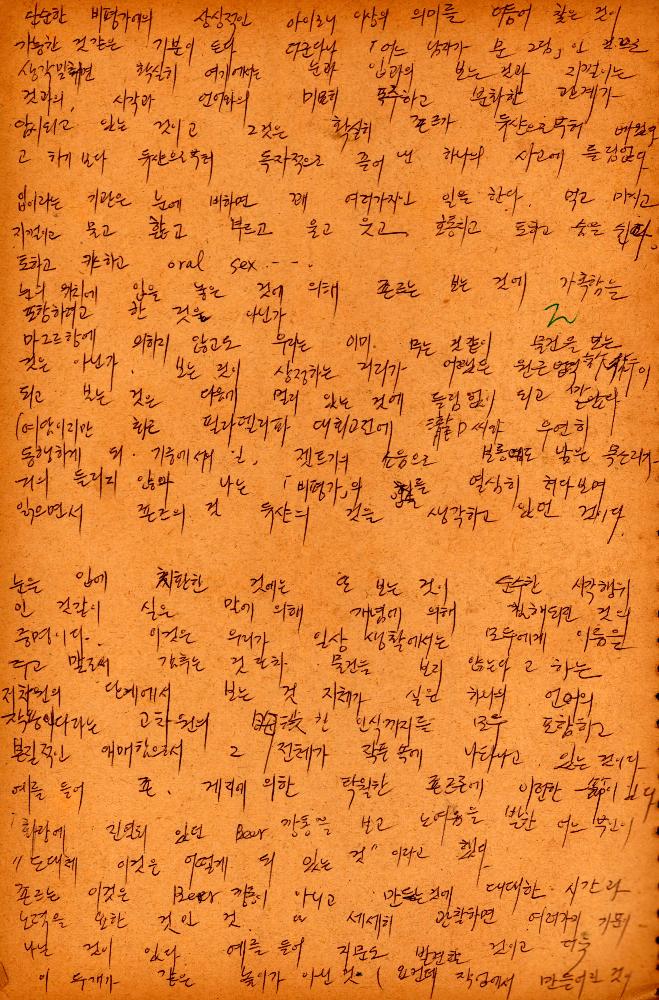 단순한 비평가의 상상적인 아이러니 이상의 의미를 더듬어 찾은 것이
가능한 것같은 기분이 든다 더군다나 「어느 남자가 문 그림」인
생각 확실히 여기에서는 눈과 입과의 보는 것과 지껄이는
것과의, 시각과 언어와의 미묘히 하고 분화한 관계가
암시되고 있는 것이고 그것은 확실히 죤즈가 듀샹으로부터 배웠다
고 하기 보다 듀샹으로부터 독자적으로 끌어낸 하나의 사고에 틀림없다
입이라는 기관은 눈에 비하면 꽤 여러가지의 일을 한다. 먹고 마시고
지껄이고 물고 핥고 부르고 울고 웃고, 호통치고 토하고 숨을 쉰다.
토하고 키스하고 oral sex - - -
눈의 위치에 입을 놓은 것에 의해 죤즈는 보는 것에 가혹함을
포함하려고 한 것은 아닌가
마그르함에 의하지 않고도 우리는 이미 먹는 것같이 물건을 보는
것은 아닌가. 보는 것이 상정하는 거리가 어쨌든
되고 보는 것은 다음에 멀리 있는 것에 틀림없이 되고 만다
(여담이지만 최근 필라델리파 대회고전에 D씨가 우연히
동행하게 돼. 기중에서의 일, 젯트기의 소음으로 보통때도 낮은 목소리가
거의 들리지 않아 나는 「비평가」의 열심히 쳐다보며
읽으면서 죤즈의 것 듀샹의 것을 생각하고 있던 것이다.
눈을 입에 치환한 것에는 또 보는 것이 순수한 시각행위
인 것같이 실은 말에 의해 개념에 의해 침해되린 것의
증명이다. 이것은 우리가 일상 생활에서는 모두에게 이름을
두고 말로써 감추는 것 만하 물건을 보지 않는다고 하는
저차원의 단계에서 보는 것 자체가 실은 하나의 언어의
작용이다라는 고차원의 인식까지를 모두 포함하고
본질적인 애매함으로서 그 전체가 작품 속에 나타나고 있는 것이다
예를 들어 죤. 게리에 의한 탁월한 죤즈론에 이런한 이 있다
「화랑에 진열되 있던 Beer 깡통을 보고 노여움을 발한 어느 부인이
"도대체 이것은 어떻게 되 있는 것" 이라고 했다
죤즈는 이것은 Beer 깡통이 아니고 만드는 것에 대대한 시간과
노력을 요한 것인 것. 세세히 관찰하면 여러가지
나날 것이 있다 예를 들어 지문도 발견할 것이고
이 두개가 같은 높이가 아닌 것 (요컨데 작업에서 만들어린 것